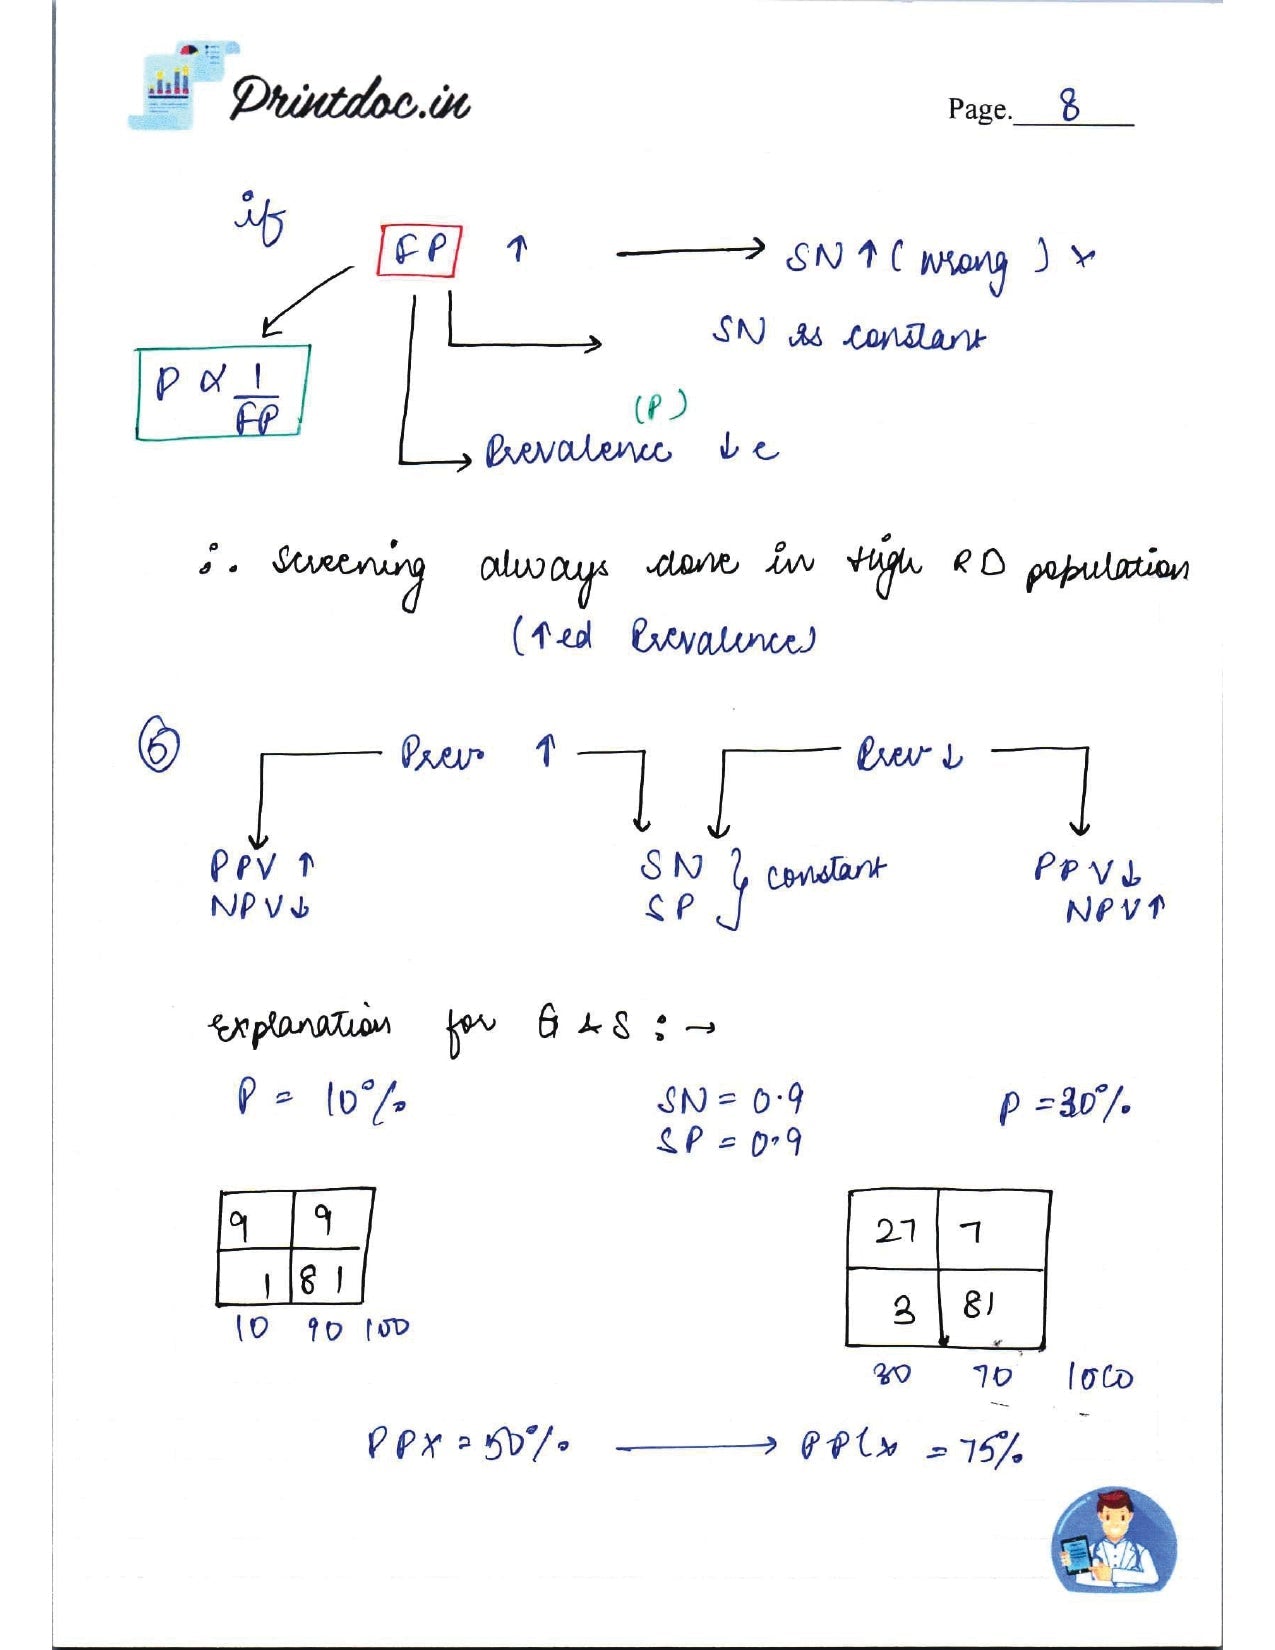 Printdoc.in
Page. 8
if
FP ↑ → SN ↑ ( wrong ) ×
SN is constant
P ∝ 1/FP
(P)
Prevalence ↓ e
∴ Screening always done in High RD population
(↑ed Prevalence)
⑤ Prev. ↑ Prev ↓
PPV ↑ SN } constant PPV ↓
NPV ↓ SP NPV ↑
Explanation for G & S : →
P = 10% SN = 0.9 P = 30%
SP = 0.9
9 9
1 81
10 90 100
27 7
3 81
30 70 1000
PPX = 50% → PP(x = 75%